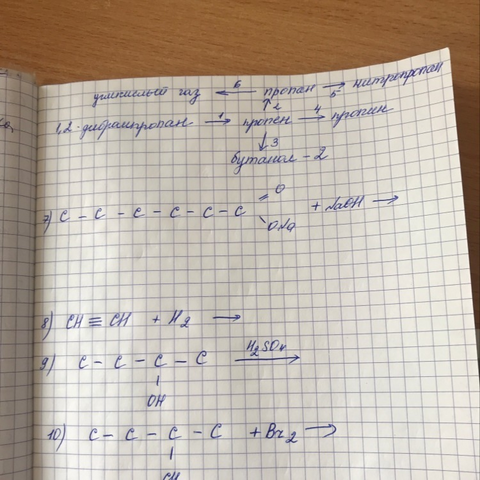 углекислый газ ←6 пропан →5 нитропропан
↑2
1,2-дибромпропан →1 пропен →4 пропин
↓3
бутанол-2
7) C - C - C - C - C - C =O -ONa + NaOH →
8) CH ≡ CH + H2 →
9) C - C - C - C H2SO4 →
OH
10) C - C - C - C + Br2 →
CH